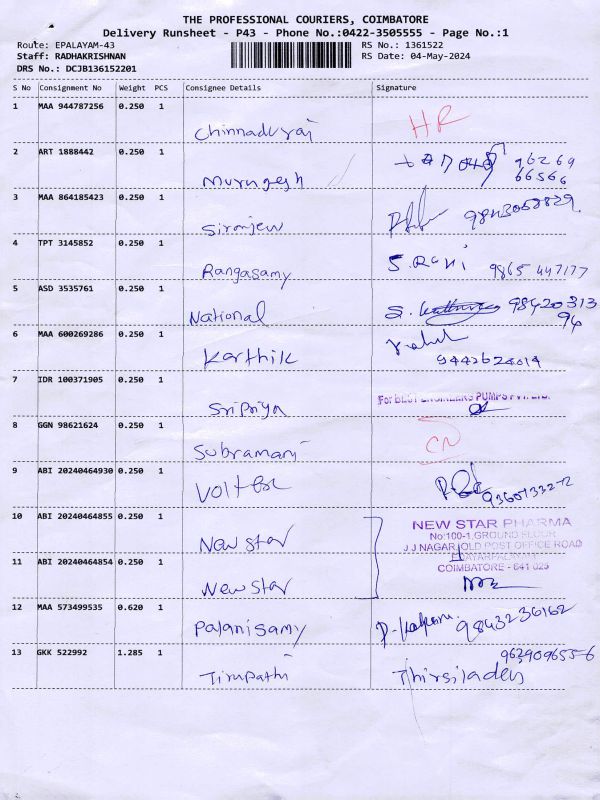 THE PROFESSIONAL COURIERS, COIMBATORE
Delivery Runsheet - P43 - Phone No.:0422-3505555 - Page No.:1
Route: EPALAYAM-43 RS No.: 1361522
Staff: RADHAKRISHNAN RS Date: 04-May-2024
DRS No.: DCJB136152201
S No Consignment No Weight PCS Consignee Details Signature
1 MAA 944787256 0.250 1
Chinnadurai HR
2 ART 1888442 0.250 1
Murugesh 96269
66566
3 MAA 864185423 0.250 1
9843058829
4 TPT 3145852 0.250 1
Rangasamy S. Rani 9865 447177
5 ASD 3535761 0.250 1
National S. 98420313
94
6 MAA 600269286 0.250 1
Karthik
9442624014
7 IDR 100371905 0.250 1
Sripriya For BEST ENGINEERS PUMPS PVT. LTD.
8 GGN 98621624 0.250 1
Subramani CN
9 ABI 20240464930 0.250 1
10 ABI 20240464855 0.250 1
New star NEW STAR PHARMA
No:100-1,GROUND FLOOR
J J NAGAR,OLD POST OFFICE ROAD
11 ABI 20240464854 0.250 1
COIMBATORE - 641 025
New star
12 MAA 573499535 0.620 1
Palanisamy 9843236162
13 GKK 522992 1.285 1
9639096556
Tirupathi